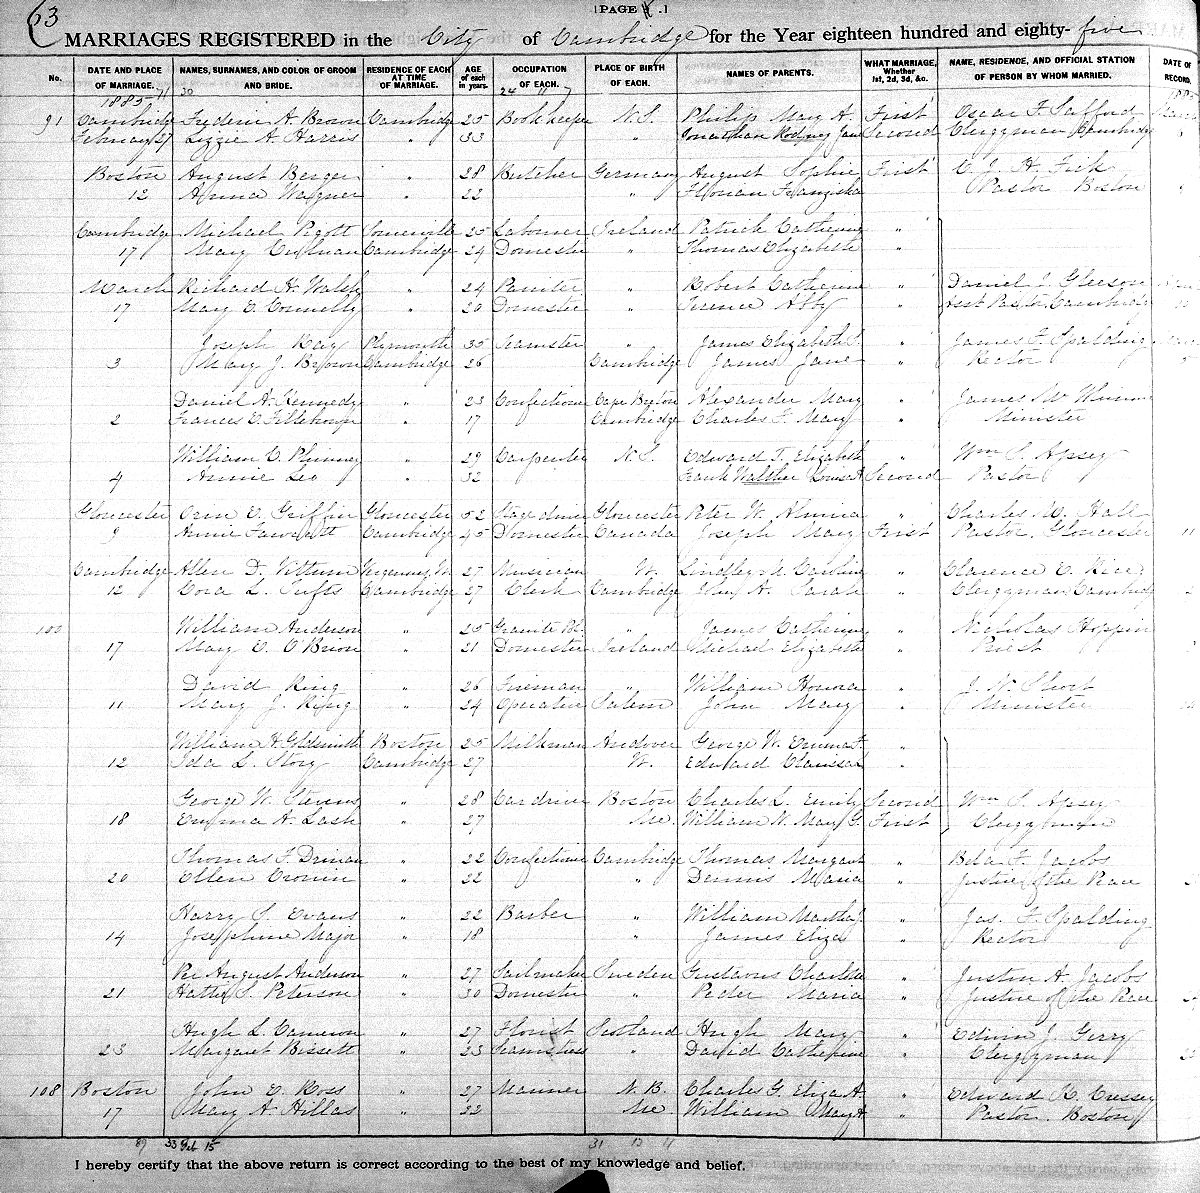 63
[PAGE .]
MARRIAGES REGISTERED in the City of Cambridge for the Year eighteen hundred and eighty-five
No. DATE AND PLACE OF MARRIAGE. NAMES, SURNAMES, AND COLOR OF GROOM AND BRIDE. RESIDENCE OF EACH AT TIME OF MARRIAGE. AGE of each in years. OCCUPATION OF EACH. PLACE OF BIRTH OF EACH. NAMES OF PARENTS. WHAT MARRIAGE, Whether 1st, 2d, 3d, &c. NAME, RESIDENCE, AND OFFICIAL STATION OF PERSON BY WHOM MARRIED. DATE OF RECORD.
1885 71 30 24 11 7 1885
91 Cambridge Frederic A. Brown Cambridge 25 Book keeper N.S. Philip Mary A. First Oscar F. Safford
February 27 Lizzie A. Harris " 33 " Jonathan Rodney Jane Second Clergyman Cambridge
Boston August Berger " 28 Butcher Germany August Sophie First C. J. H. Fick
12 Anna Wagner " 22 " Florian Franziska Pastor Boston
Cambridge Michael Pigott Somerville 25 Laborer Ireland Patrick Catherine "
17 Mary Cuhnan Cambridge 24 Domestic " Thomas Elizabeth "
March Richard H. Walsh " 24 Painter " Robert Catherine " Daniel J. Gleeson
17 Mary E. Connelly " 20 Domestic " Terence Abby " Asst Pastor, Cambridge
Joseph Kay Plymouth 35 Teamster " James Elizabeth S. " James F. Spalding
3 Mary J. Brown Cambridge 26 Cambridge James Jane " Rector 5
Daniel A. Kennedy " 23 Confectioner Cape Breton Alexander Mary " James M.
2 Frances E. " 17 Cambridge Charles F. Mary " Minister
William C. Phinney " 29 Carpenter N.S. Edward T. Elizabeth " Wm. S. Apsey
4 Annie Leo " 32 Frank Walther Louisa A Second Pastor
Gloucester Orin C. Griffin Gloucester 52 Stage driver Gloucester Peter W. Almira " Charles W. Hall
9 Annie Fawcett Cambridge 45 Domestic Canada Joseph Mary First Pastor, Gloucester 11
Cambridge Allen D. Vittum 27 Musician " Clarence E. Rice
12 Cora L. Tufts Cambridge 27 Clerk Cambridge John A. Sarah " Clergyman Cambridge
100 William Anderson " 25 Granite " James Catherine " Nicholas Hoppin
17 Mary E. O'Brien " 21 Domestic Ireland Michael Elizabeth " Priest
David King " 26 Fireman " William Honora " J. N. Short
11 Mary J. King " 24 Operative Salem John Mary " Minister
William H. Goldsmith Boston 25 Milkman Andover George W. Emma F. "
12 Ida L. Story Cambridge 27 Edward Clarissa "
George W. Stevens " 28 Car driver Boston Charles L. Emily Second Wm. S. Apsey
18 Emma A. Lash " 27 Me. William W. Mary G. First Clergyman
Thomas F. Drinan " 22 Confectioner Cambridge Thomas Margaret " Bela F. Jacobs
20 Ellen Cronin " 22 " Dennis Maria " Justice of the Peace
Harry S. Evans " 22 Barber " William Martha J. " Jas. F. Spalding
14 Josephine Major " 18 " James Eliza " Rector
Per August Anderson " 27 Sailmaker Sweden Gustavus Charlotte " Justin A. Jacobs
21 Hatty S. Peterson " 30 Domestic " Peder Maria " Justice of the Peace
Hugh L. Cameron " 27 Florist Scotland Hugh Mary " Edwin J. Gerry
23 Margaret Bissett " 23 Seamstress " David Catherine " Clergyman 25
108 Boston John E. Ross " 27 Mariner N.B. Charles G. Eliza A. " Edward K. Cressey
17 Mary A. Hillas " 22 Me William Mary A " Pastor, Boston
89 33 15 31 13 11
I hereby certify that the above return is correct according to the best of my knowledge and belief.